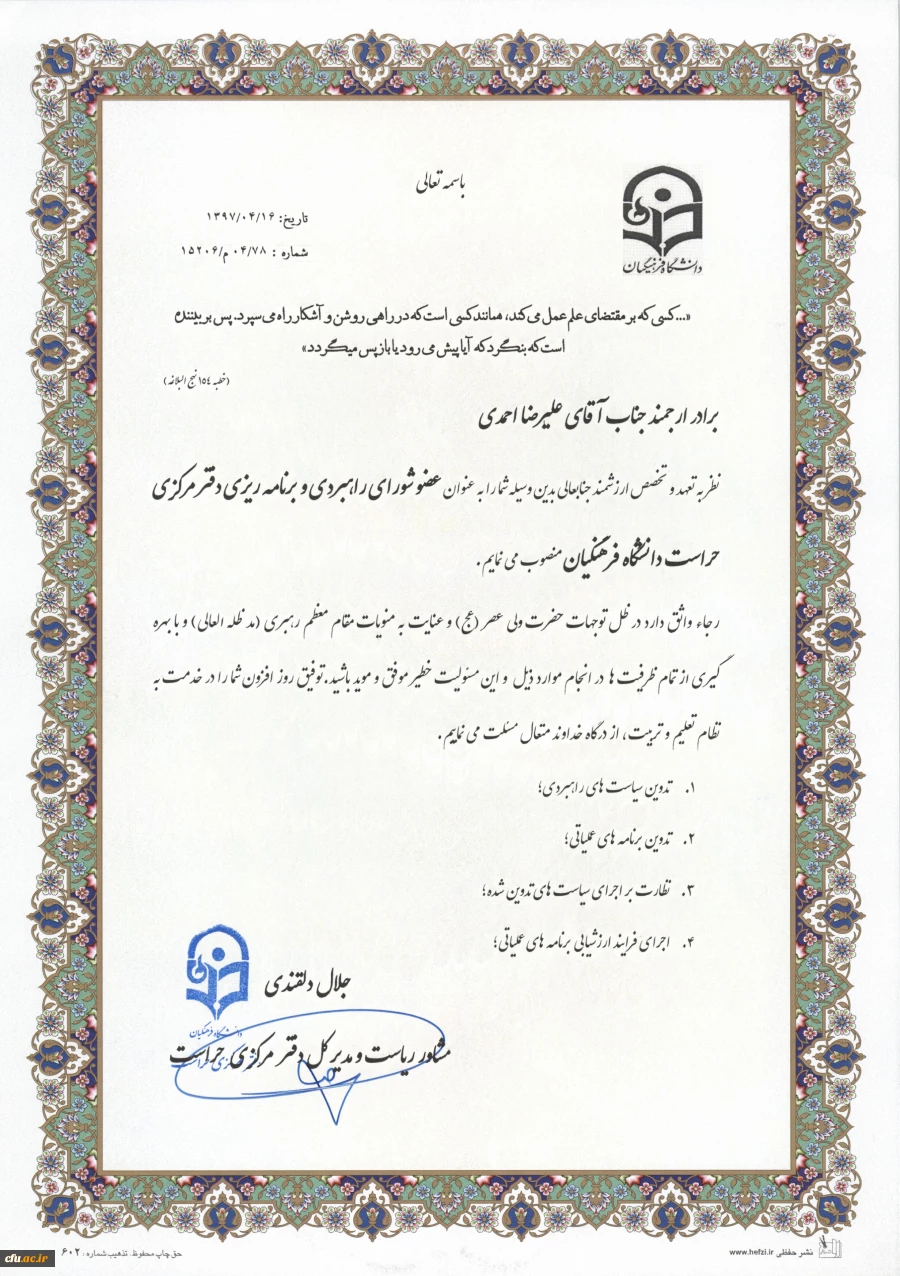 باسمه تعالی
دانشگاه فرهنگیان
تاریخ: ۱۳۹۷/۰۴/۱۶
شماره : ۰۴/۷۸ م/۱۵۲۰۶
«...کسی که بر مقتضای علم عمل می کند، همانند کسی است که در راهی روشن و آشکار راه می سپرد. پس بر بیننده
است که بنگرد که آیا پیش می رود یا باز پس میگردد»
(خطبه ١٥٤ نهج البلاغه)
برادر ارجمند جناب آقای علیرضا احمدی
نظر به تعهد و تخصص ارزشمند جنابعالی بدین وسیله شما را به عنوان عضو شورای راهبردی و برنامه ریزی دفتر مرکزی
حراست دانشگاه فرهنگیان منصوب می نمایم.
رجاء واثق دارد در ظل توجهات حضرت ولی عصر (عج) و عنایت به منویات مقام معظم رهبری (مد ظله العالی) و با بهره
گیری از تمام ظرفیت ها در انجام موارد ذیل و این مسئولیت خطیر موفق و موید باشید. توفیق روز افزون شما را در خدمت به
نظام تعلیم و تربیت، از درگاه خداوند متعال مسئلت می نماییم.
۱. تدوین سیاست های راهبردی؛
۲. تدوین برنامه های عملیاتی؛
۳. نظارت بر اجرای سیاست های تدوین شده؛
۴. اجرای فرایند ارزشیابی برنامه های عملیاتی؛
جلال دلقندی
دانشگاه فرهنگیان
مشاور ریاست و مدیر کل دفتر مرکزی حراست
نشر حفظی www.hefzi.ir
حق چاپ محفوظ. تذهیب شماره : ۶۰۲
cfu.ac.ir